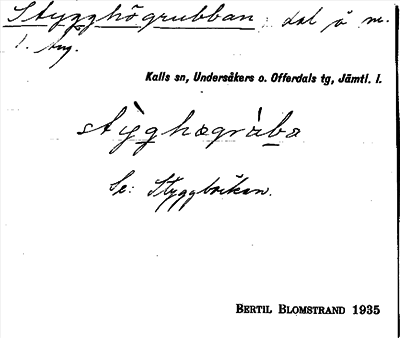 Stygghögrubban: dal å m.
l. ang.
Kalls sn, Undersåkers o. Offerdals tg, Jämtl. l.
stỳghægràba
Se: Styggbräkan.
BERTIL BLOMSTRAND 1935